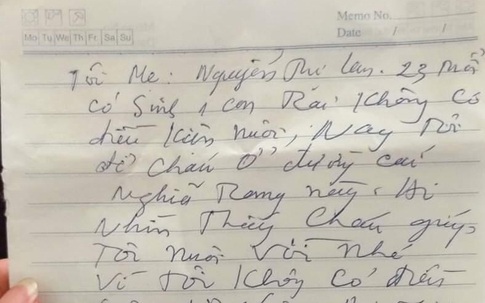 Memo No.
Mo Tu We Th Fr Sa Su
Date / /
Tôi Mẹ: Nguyễn Thi Lan. 23 tuổi
có Sinh 1 con Rai Không có
điều kiện nuôi, Nay Tôi
để cháu Ở đường cái
Nghĩa Trang này. Ai
Nhìn Thấy Cháu giúp
Tôi Nuôi Với Nhé
Vì Tôi Không Có điều